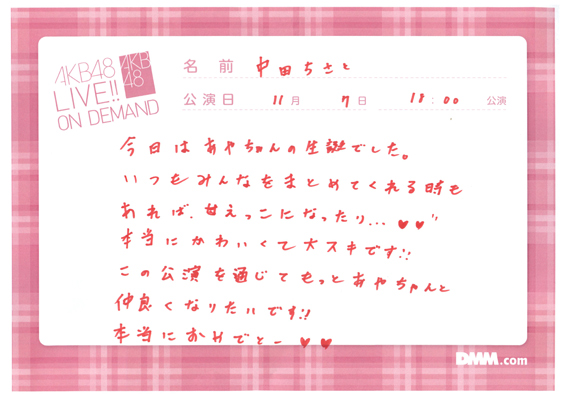 AKB48
LIVE!!
ON DEMAND
AKB
48
名 前 中田ちさと
公演日 11月 7日 18:00 公演
今日はあやちゃんの生誕でした。
いつもみんなをまとめてくれる時も
あれば、甘えっこになったり...♥♥"
本当にかわいくて大スキです!!
この公演を通じてもっとあやちゃんと
仲良くなりたいです!!
本当におめでとー ♥♥
DMM.com